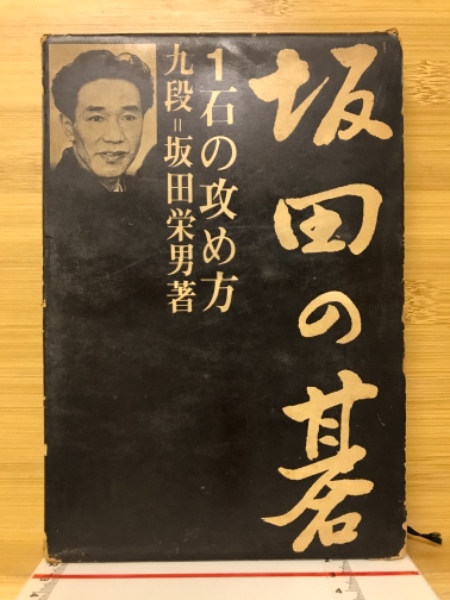 坂田の碁
1石の攻め方
九段=坂田栄男著